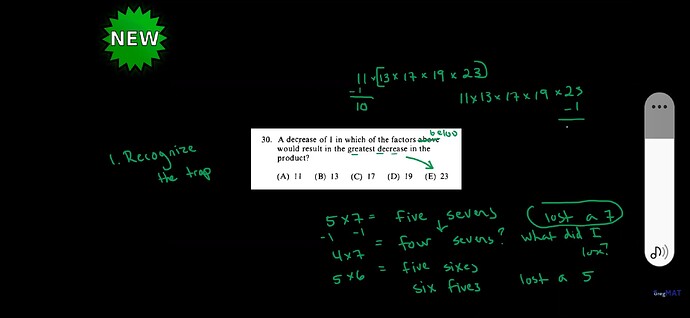 NEW
11 x [13 x 17 x 19 x 23]
-1
10
11x13 x 17 x 19 x 23
-1
1. Recognize
the trap
30. A decrease of 1 in which of the factors above below
would result in the greatest decrease in the
product?
(A) 11 (B) 13 (C) 17 (D) 19 (E) 23
5 x 7 = five sevens lost a 7
-1 -1
4x7 = four sevens? what did I
lose?
5 x 6 = five sixes
six fives lost a 5
GregMAT